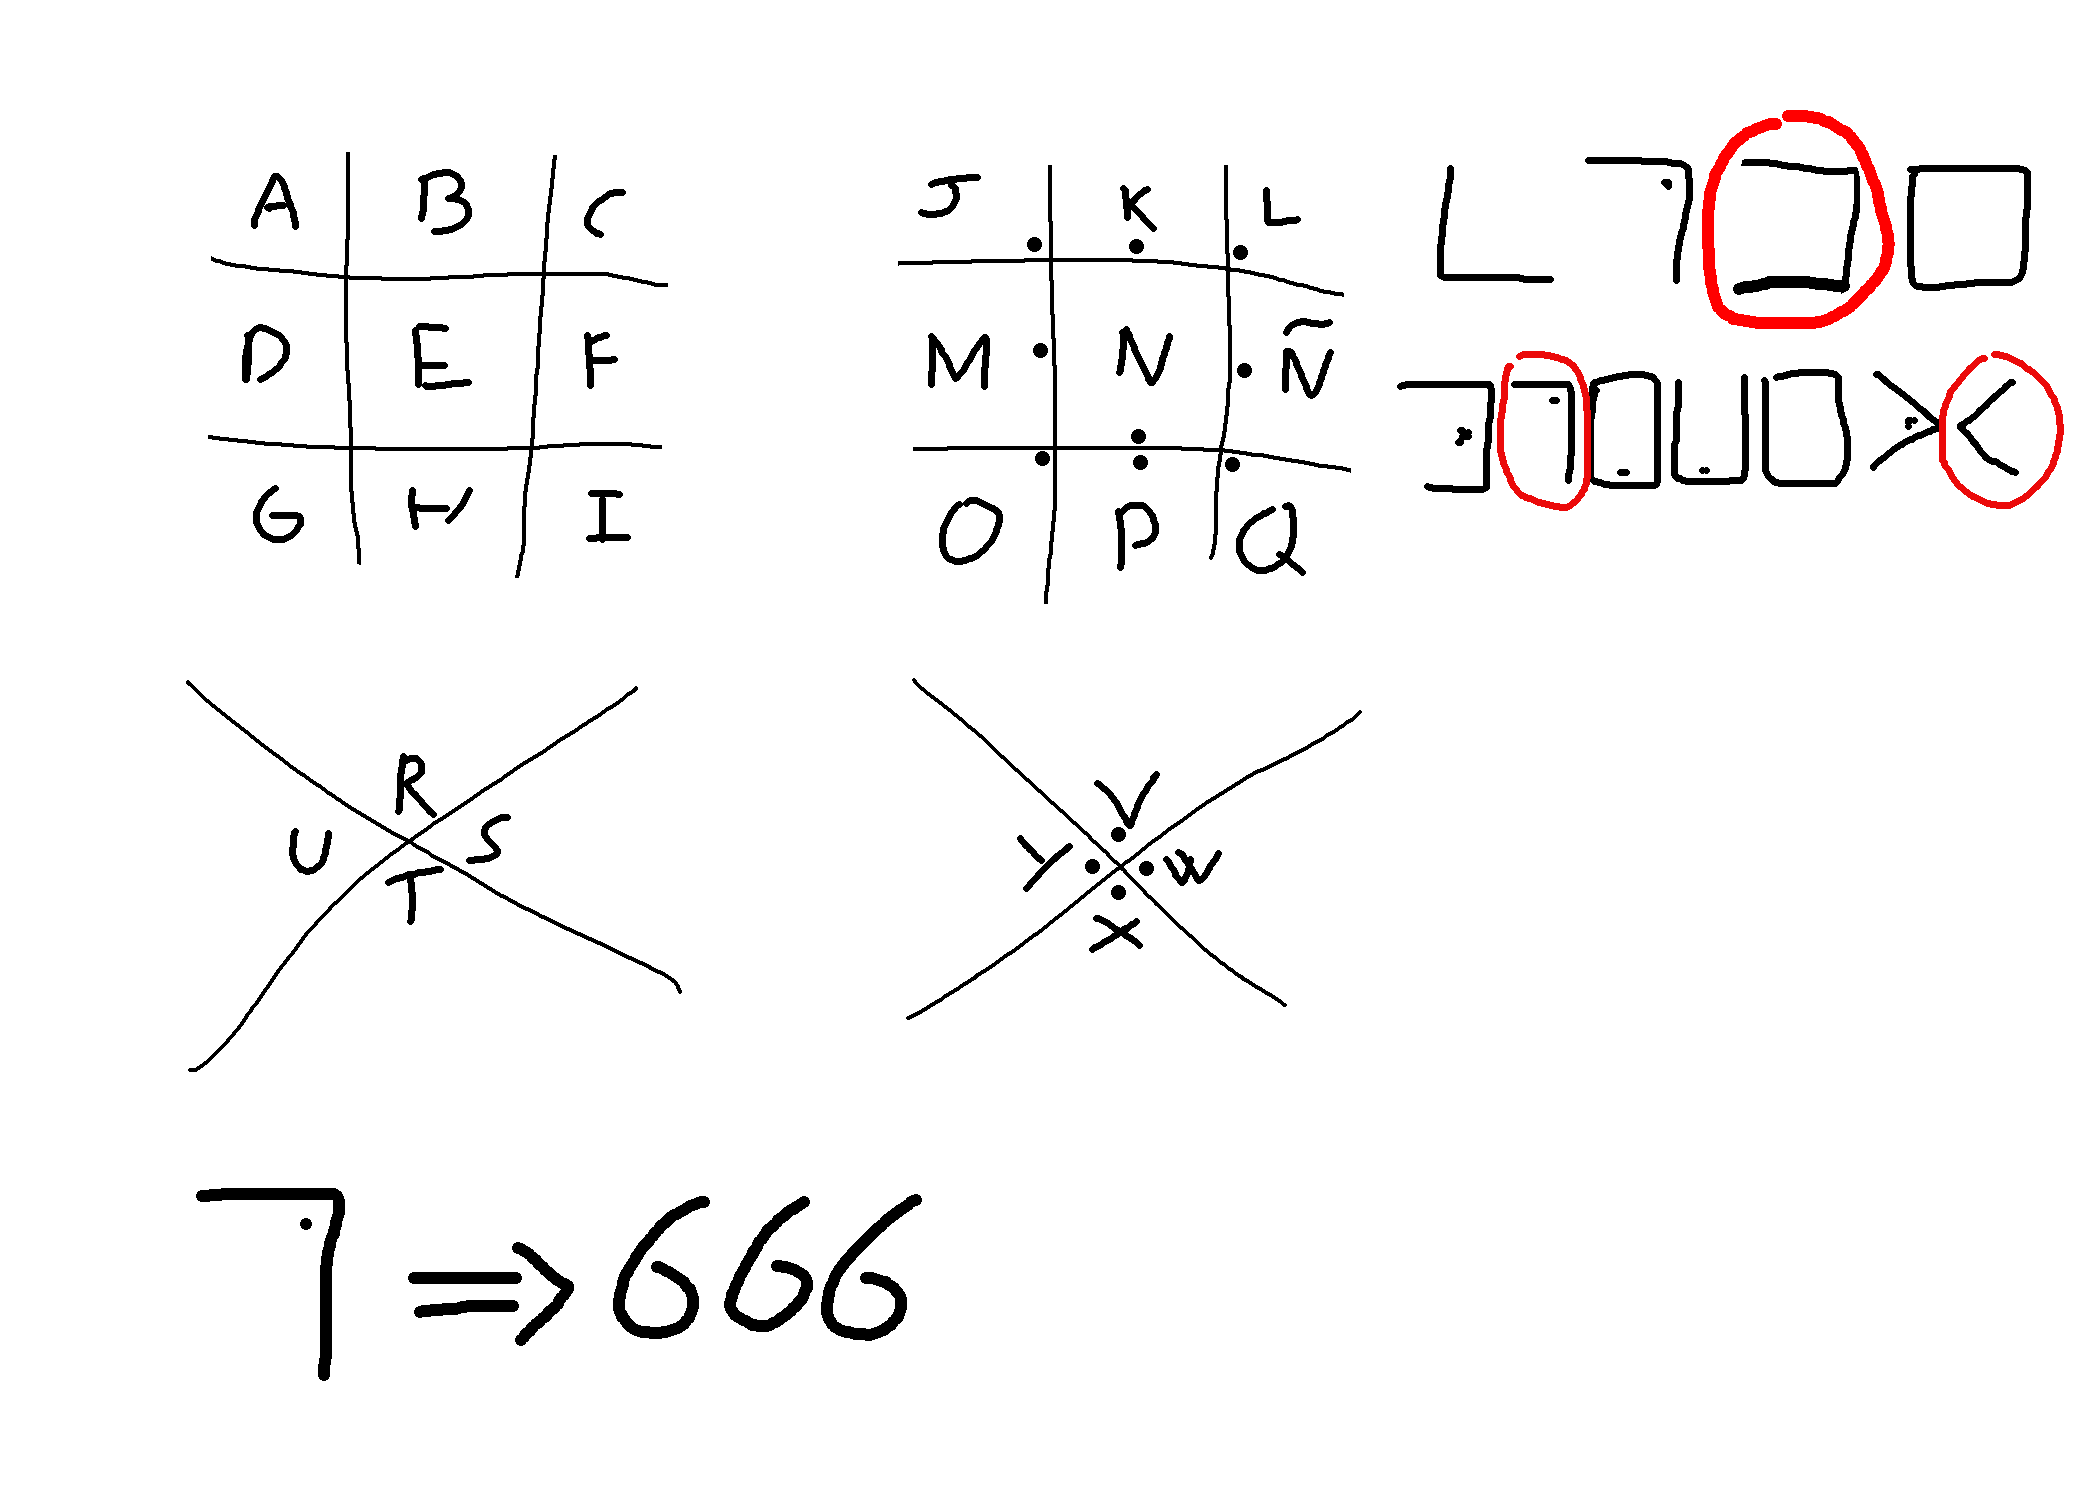 A B C
D E F
G H I
J K L
M N Ñ
O P Q
R
U S
T
V
Y W
X
⇒ 666